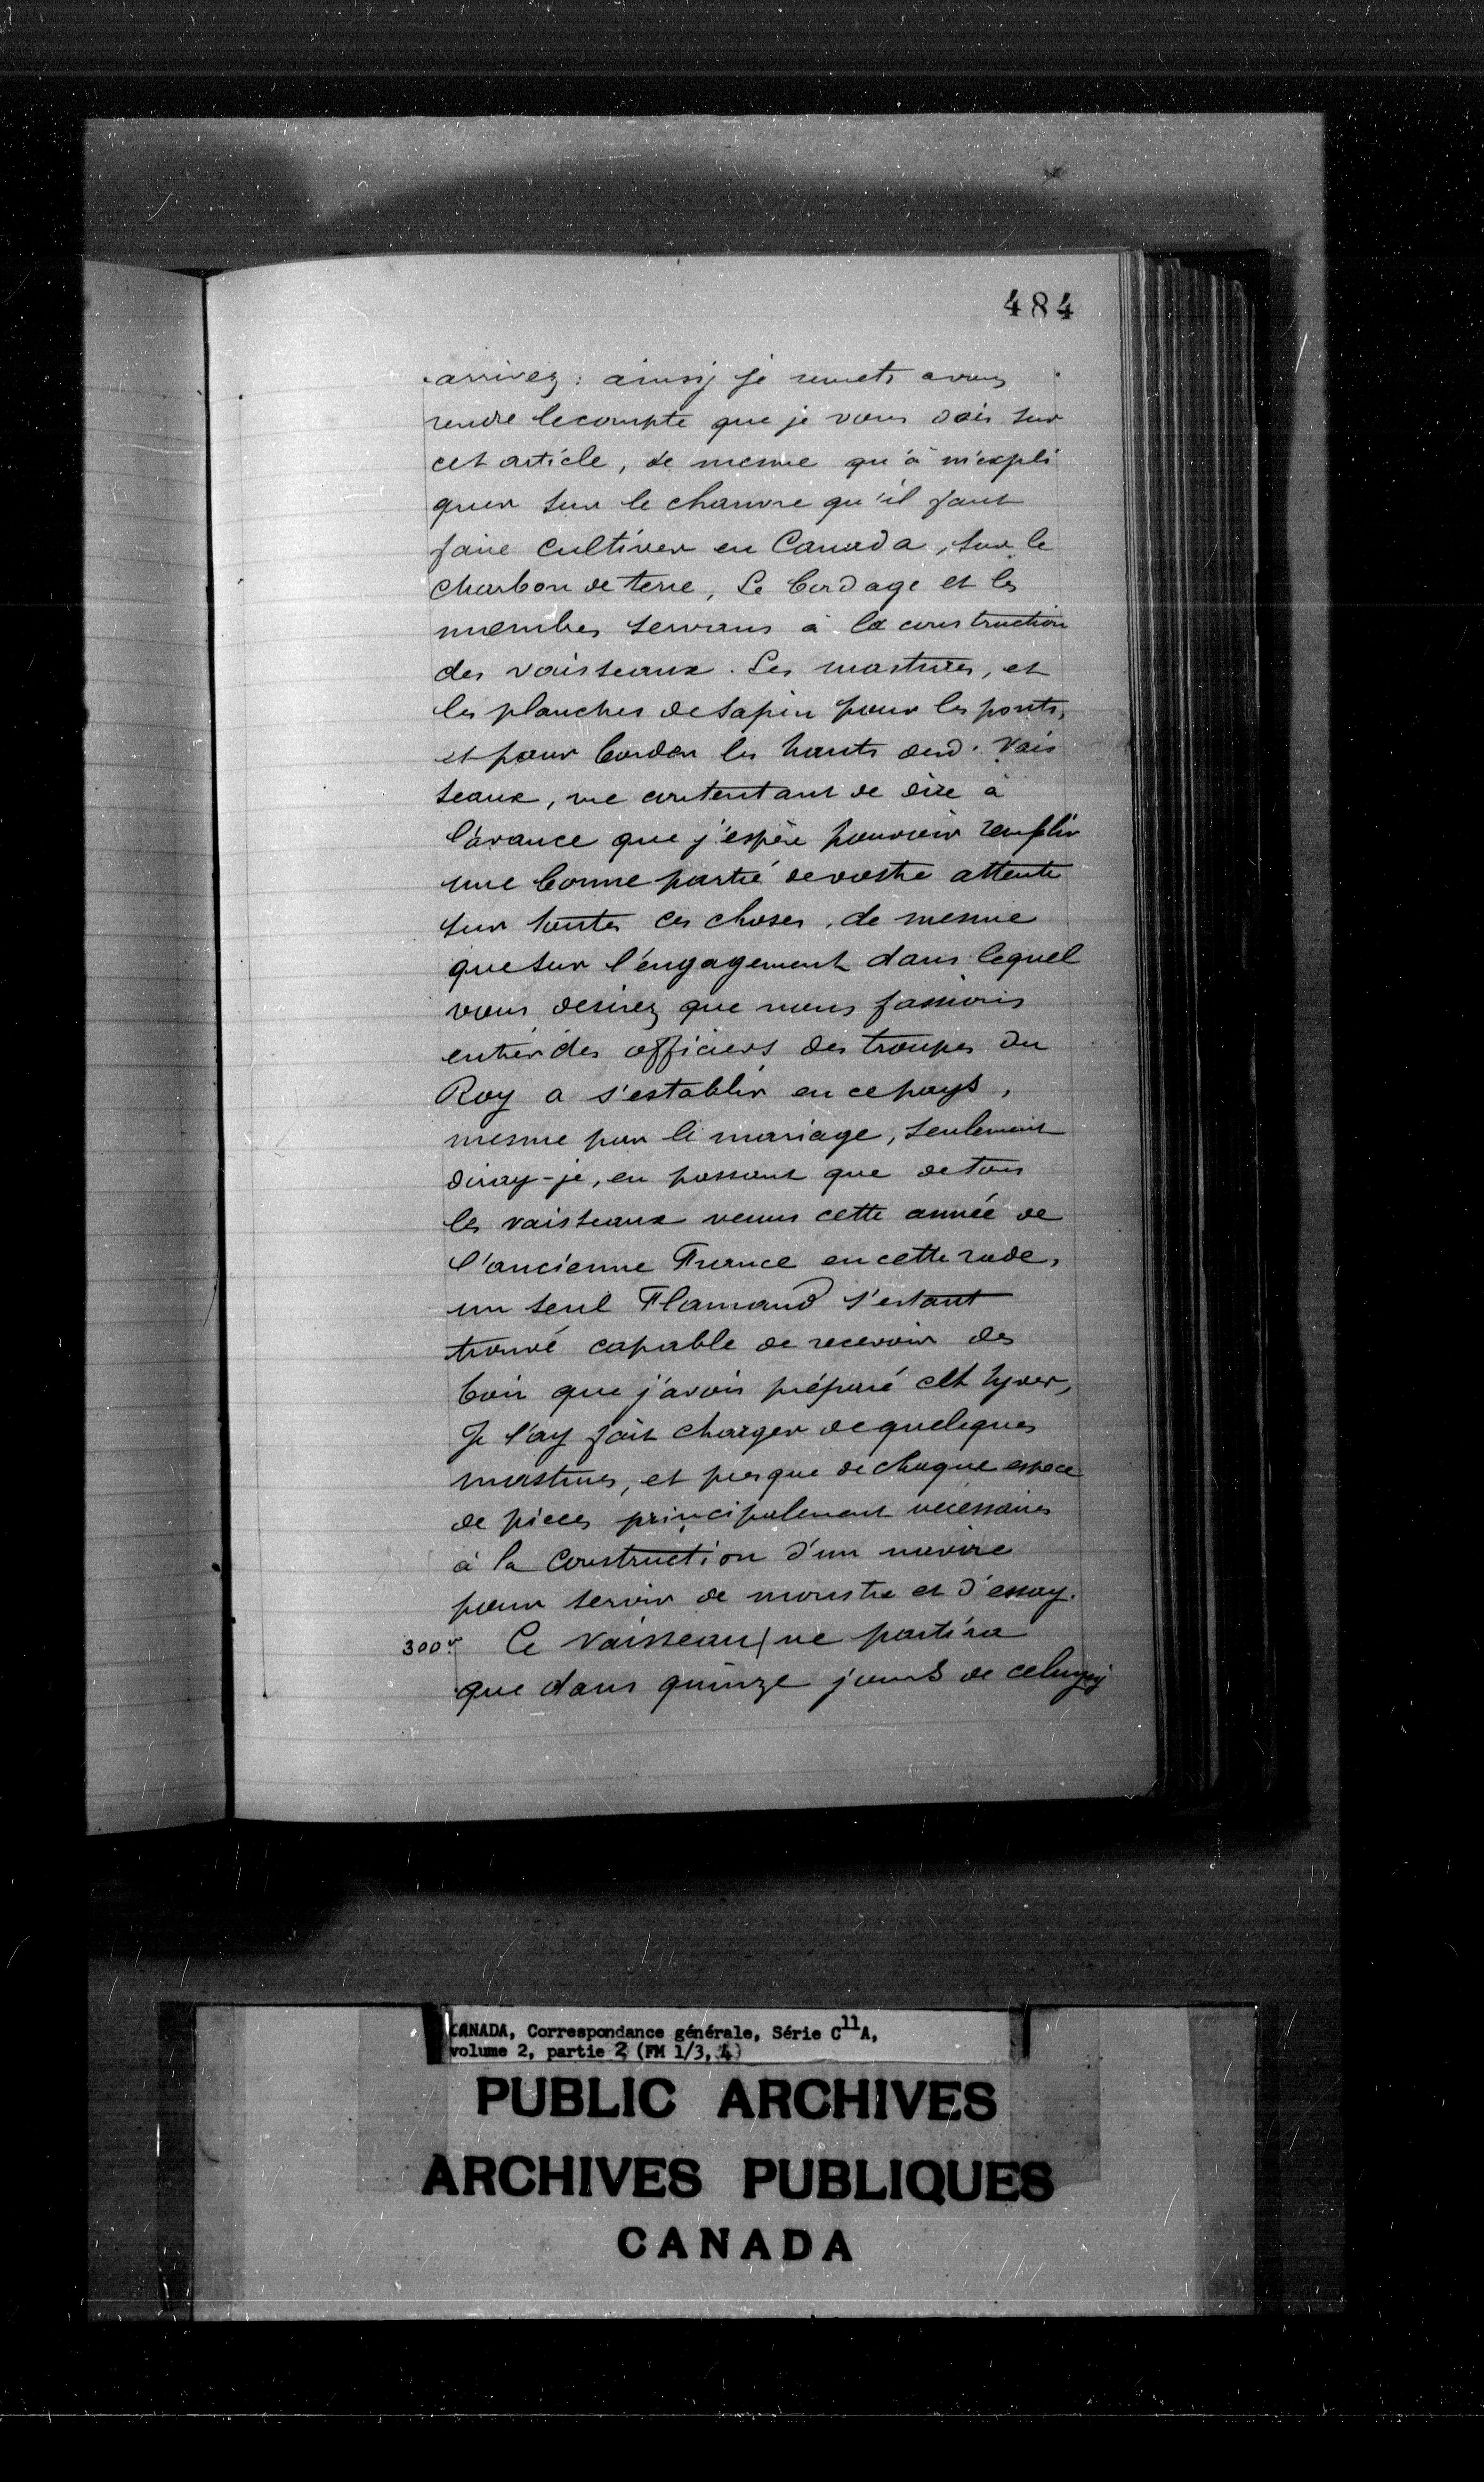 484
arrivez : ainsy je remets a vous
rendre lecompte que je vous dois sur
cet article, de mesme qu'à m'expli
quer sur le chanvre qu'il faut
faire cultiver en Canada, sur le
charbon de terre, Le bordage et les
membres servans à la construction
des vaisseaux. Les mastures, et
les planches desapin pour les ponts,
et pour border les hauts desd. Vais
seaux, me contentant de dire à
l'avance que j'espère pouvoir remplir
une bonne partie devostre attente
sur toutes ces choses, de mesme
quesur l'engagement dans lequel
vous desirez que nous fassions
entrer des officiers des troupes du
Roy a s'establir en cepays,
mesme par le mariage, seulement
diray-je, en passant que detous
les vaisseaux venus cette année de
l'ancienne France encette rade,
un seul Flamand s'estant
trouvé capable de recevoir des
bois que j'avois préparé cet hyver,
Je l'ay fait charger dequelques
mastures, et presque dechaque espece
de pieces principalement necessaires
à la Construction d'un navire
pour servir de monstre et d'essay.
300v. Ce vaisseau ne partira
que dans quinze jours de celuycy
CANADA, Correspondance générale, Série C11A,
volume 2, partie 2 (FM 1/3, 4)
PUBLIC ARCHIVES
ARCHIVES PUBLIQUES
CANADA